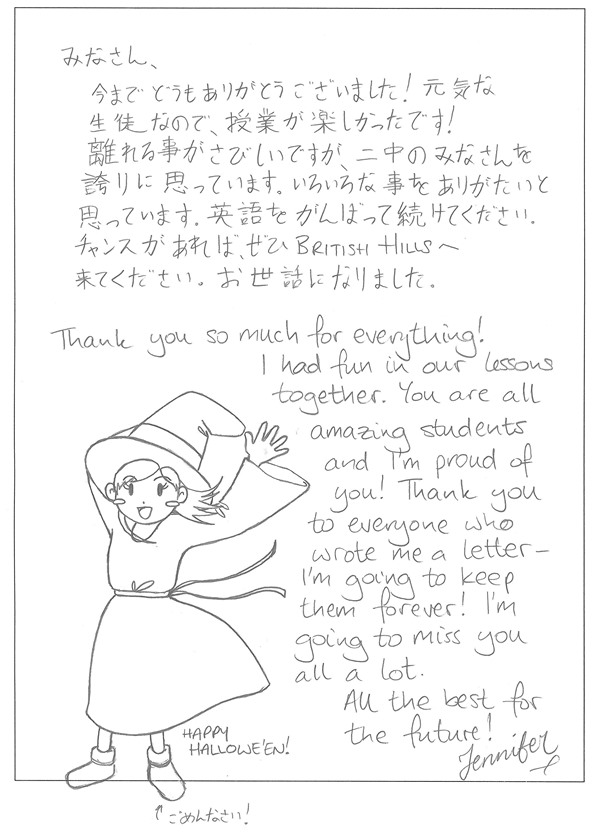 みなさん、
今までどうもありがとうございました！元気な
生徒なので、授業が楽しかったです！
離れる事がさびしいですが、二中のみなさんを
誇りに思っています。いろいろな事をありがたいと
思っています。英語をがんばって続けてください。
チャンスがあれば、ぜひBRITISH HILLSへ
来てください。お世話になりました。
Thank you so much for everything!
I had fun in our lessons
together. You are all
amazing students
and I'm proud of
you! Thank you
to everyone who
wrote me a letter–
I'm going to keep
them forever! I'm
going to miss you
all a lot.
All the best for
the future!
Jennifer x
HAPPY
HALLOWE'EN!
↑ごめんなさい！